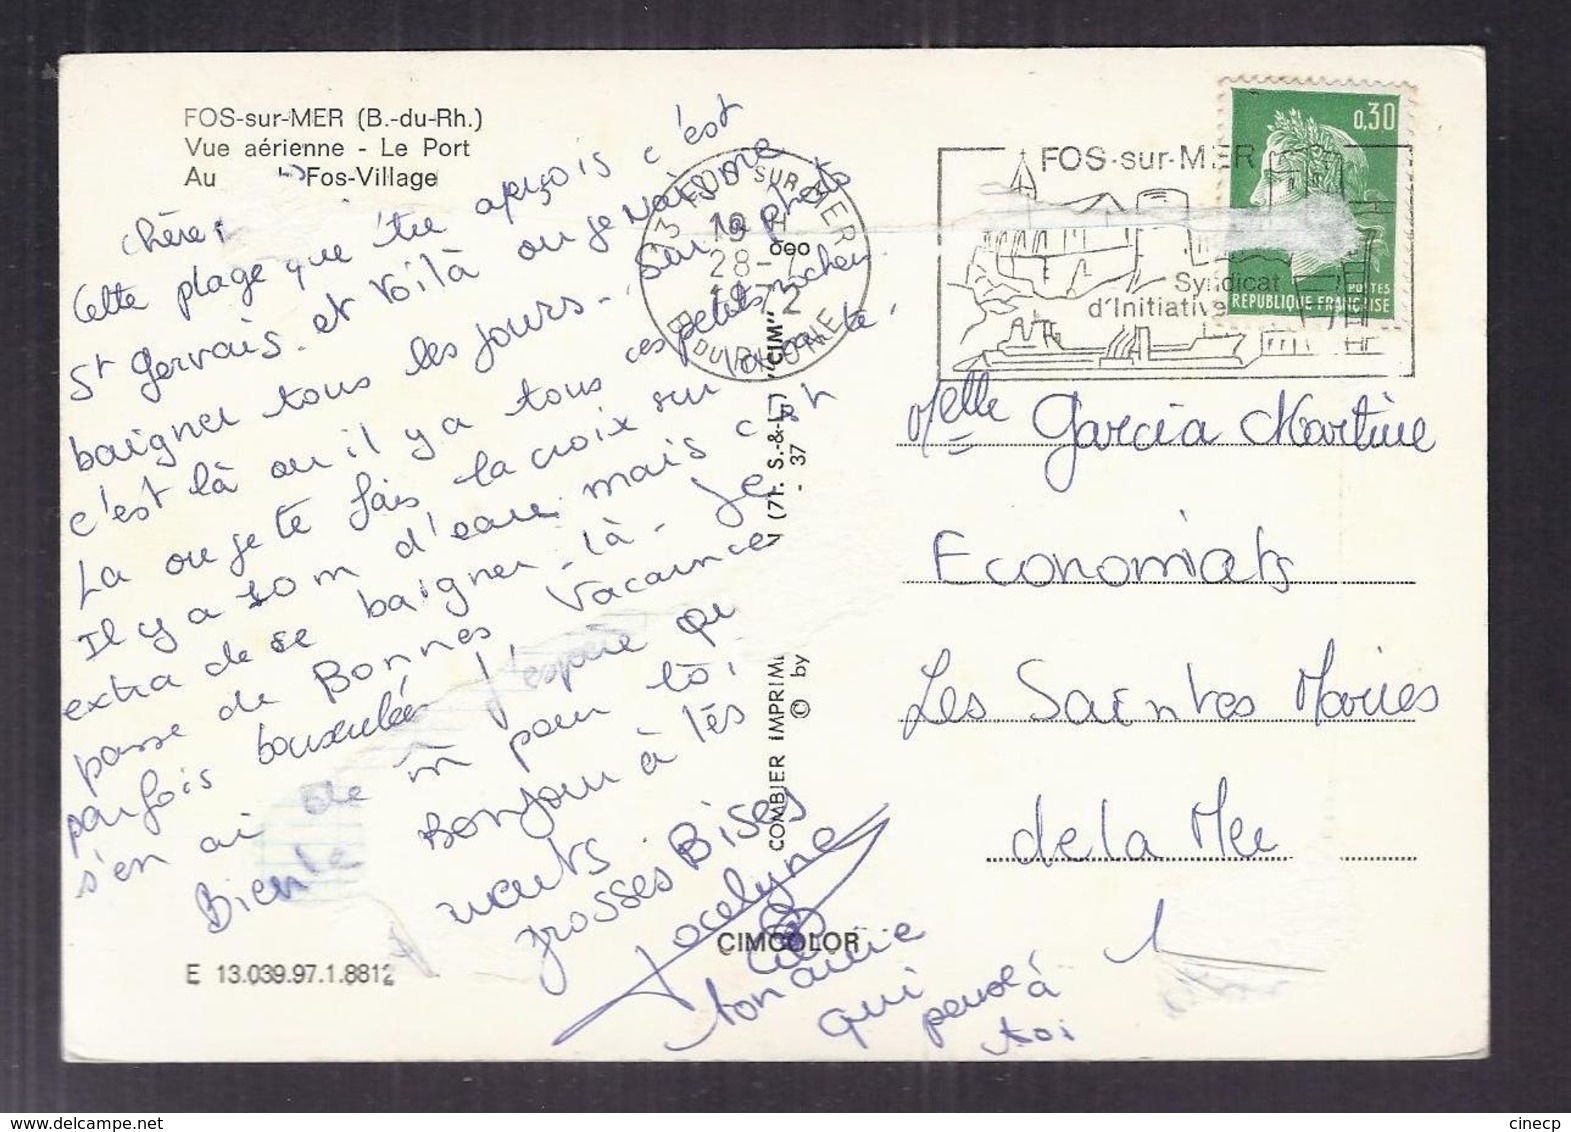 FOS-sur-MER (B.-du-Rh.)
Vue aérienne - Le Port
Au Fos-Village
chère
Cette plage que tu aperçois c'est
St Gervais. et voilà ou je vais me
baigner tous les jours - sur la photo
c'est là ou il y a tous ces petits rocher.
La ou je te fais la croix sur la carte.
Il y a 10 m d'eau mais c'est
extra de se baigner-là - Je
passe de Bonnes Vacance
parfois bousculée j'espère qu
s'en ai de m pour toi
Bien le Bonjour à tes
grosses Bises
Jocelyne
ton amie
qui pense à
toi
13 FOS SUR MER
19 H
28-7
1972
B. DU RHONE
FOS-sur-MER
Syndicat
d'Initiative
0,30
POSTES
REPUBLIQUE FRANÇAISE
Melle Garcia Martine
Economats
Les Saintes Maries
de la Mer
COMBIER IMPRIM (71. S.-&-L.) "CIM"
© by - 37
CIMCOLOR
E 13.039.97.1.8812
cinecp